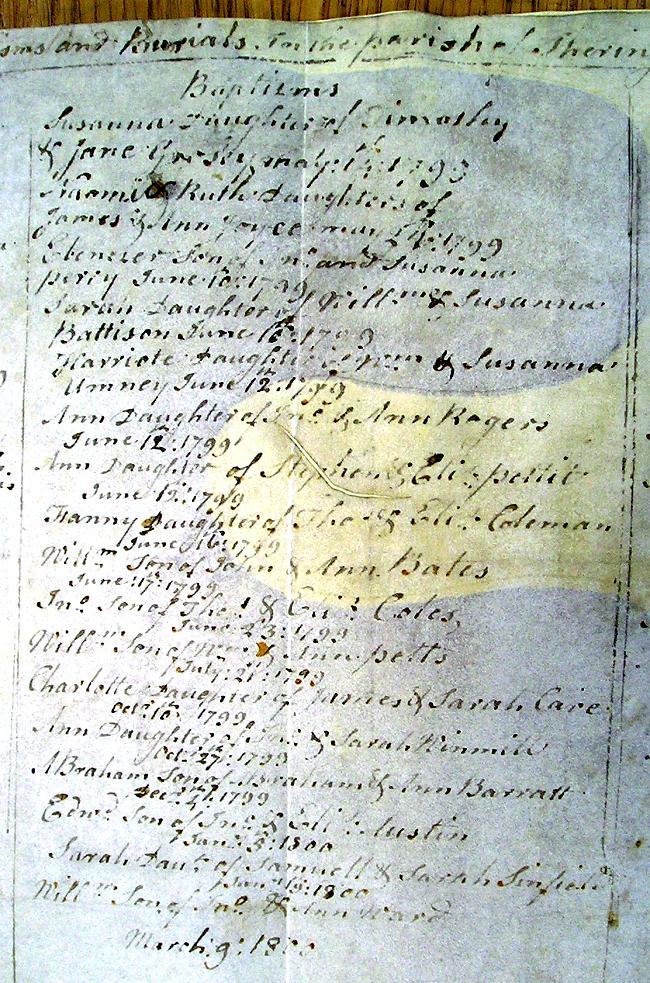 isms and Burials. In the parish of Sherin
Baptisms
Susanna Daughter of Timothy
& Jane Grosby may 1799
Naomi & Ruth Daughters of
James & Ann Joyce may 1799
Ebenezer Son of Jno. and Susanna
percy June 10: 1799
Sarah Daughter of Willm & Susanna
Battison June 1799
Harriote Daughter of Wm & Susanna
Umney June 12: 1799
Ann Daughter of Jno. & Ann Rogers
June 12: 1799
Ann Daughter of Stephen & Eliz: pettit
June 1799
Fanny Daughter of Thos & Eliz: Coleman
June 16: 1799
Willm Son of John & Ann Bates
June 17: 1799
Jno. Son of Thos & Eliz: Coles
June 23: 1799
Willm Son of Wm & Ann petts
July: 21: 1799
Charlotte Daughter of James & Sarah Care
Octr: 1799
Ann Daughter of Jno: & Sarah Winmill
Octr 27: 1799
ABraham Son of Abraham & Ann Barratt
Decr 1799
Edwd Son of Jno: & Eliz: Austin
Janr: 5: 1800
Sarah Daur of Samuell & Sarah Sinfield
Janr 1800
Willm Son of Jno. & Ann Ward
March: 9: 1800